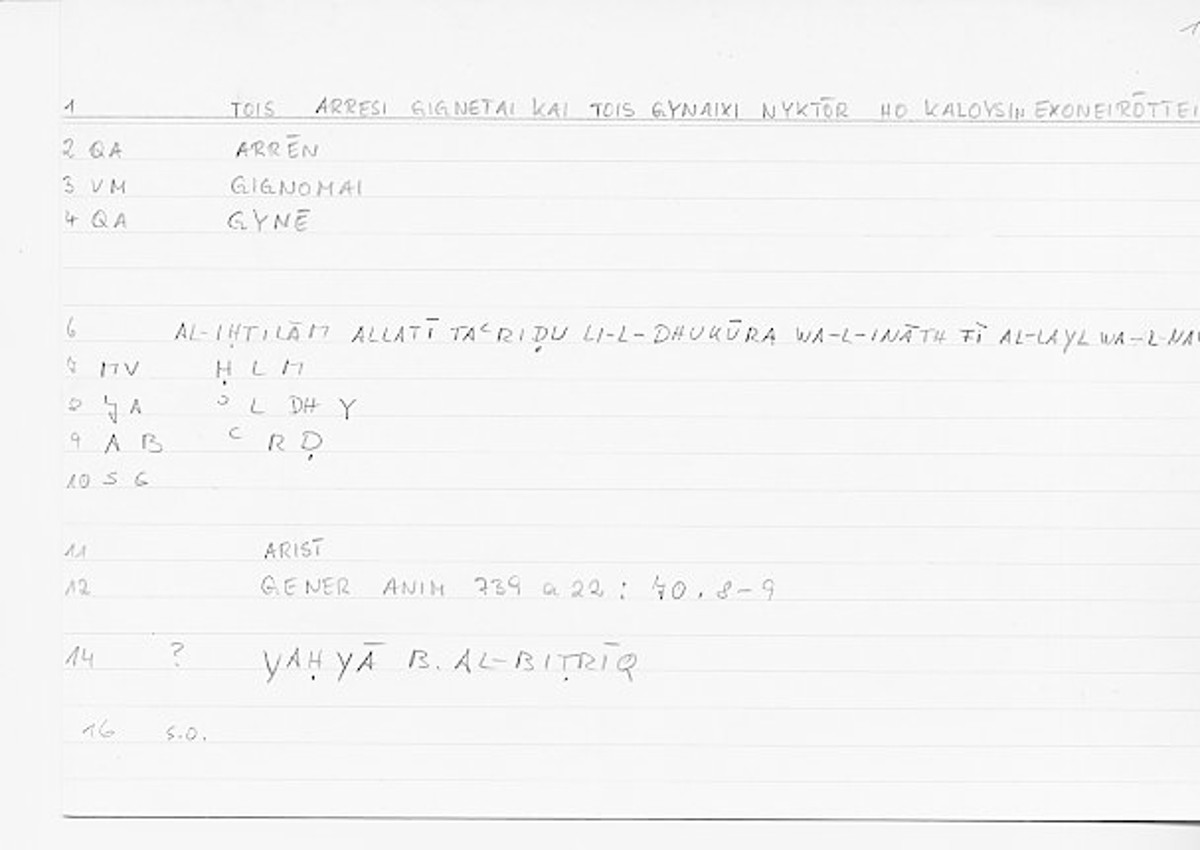 1
1 TOIS ARRESI GIGNETAI KAI TOIS GYNAIXI NYKTŌR HO KALOYSIN EXONEIRŌTTEI
2 QA ARRĒN
3 VM GIGNOMAI
4 QA GYNĒ
6 AL-IḤTILĀM ALLATĪ TAʿRIḌU LI-L-DHUKŪRA WA-L-INĀTH FĪ AL-LAYL WA-L-NA
7 MV Ḥ L M
8 JA ʾ L DH Y
9 A B ʿ R Ḍ
10 S G
11 ARIST
12 GENER ANIM 739 a 22 : 70, 8-9
14 ? YAḤYĀ B. AL-BIṬRĪQ
16 S.O.